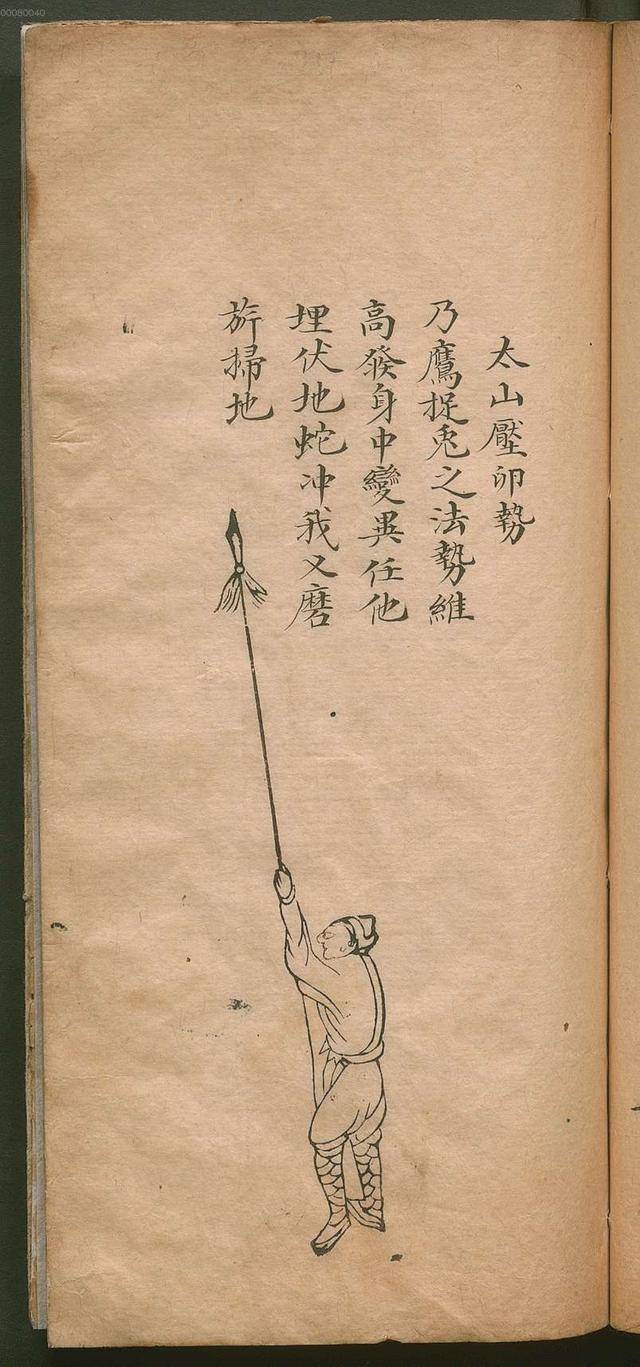 太山壓卵勢
乃鷹捉兎之法勢維
高發身中變異任他
埋伏地蛇冲我又磨
旂掃地
00080040